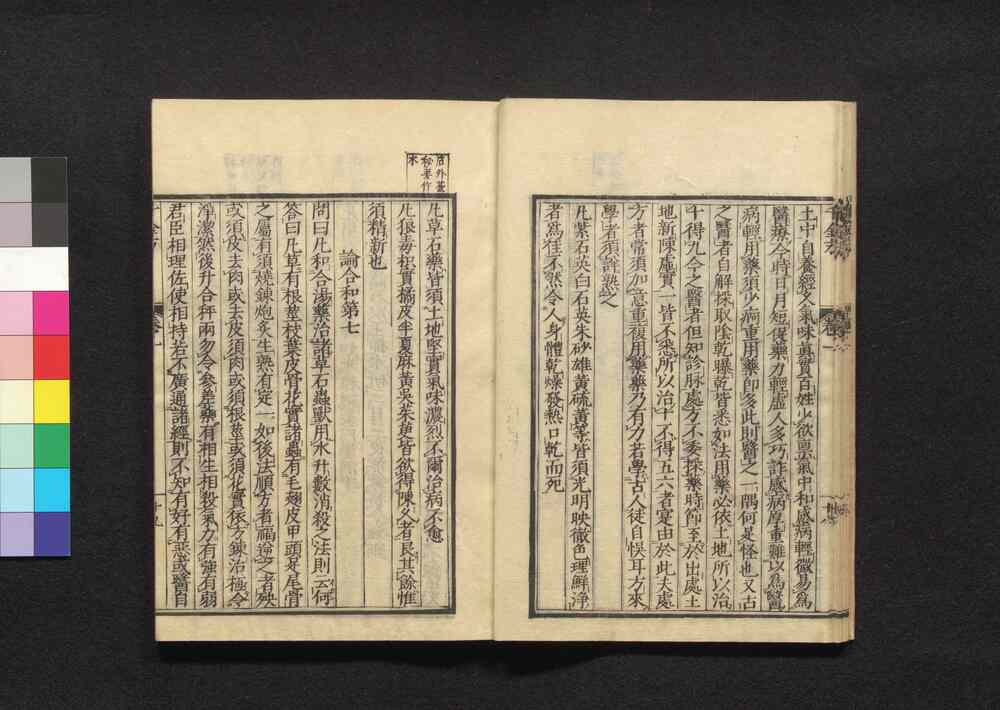 土中自養經久氣味真實百姓少欲稟氣中和感病輕微易為
醫療今時日月短促藥力輕虛人多巧詐感病厚重難以為醫
病輕用藥須少病重用藥即多此則醫之一隅何足怪也又古
之醫者自解採取陰乾曝乾皆悉如法用藥必依土地所以治
十得九今之醫者但知診脉處方不委採藥時節至於出處土
地新陳虛實一皆不悉所以治十不得五六者寔由於此夫處
方者常須加意重複用藥藥乃有力若學古人徒自悞耳方來
學者須詳熟之
凡紫石英白石英朱砂雄黃硫黃等皆須光明映徹色理鮮淨
者為佳不然令人身體乾燥發熱口乾而死
凡草石藥皆須土地堅實氣味濃烈不爾治病不愈
凡狼毒枳實橘皮半夏麻黃吳茱萸皆欲得陳久者良其餘惟
須精新也
論合和第七
問曰凡和合湯藥治諸草石蟲獸用水升數消殺之法則云何
答曰凡草有根莖枝葉皮骨花實諸蟲有毛翅皮甲頭足尾骨
之屬有須燒鍊炮炙生熟有定一如後法順方者福逆之者殃
或須皮去肉或去皮須肉或須根莖或須花實依方鍊治極令
淨潔然後升合秤兩勿令參差藥有相生相殺氣力有強有弱
君臣相理佐使相持若不廣通諸經則不知有好有惡或醫自